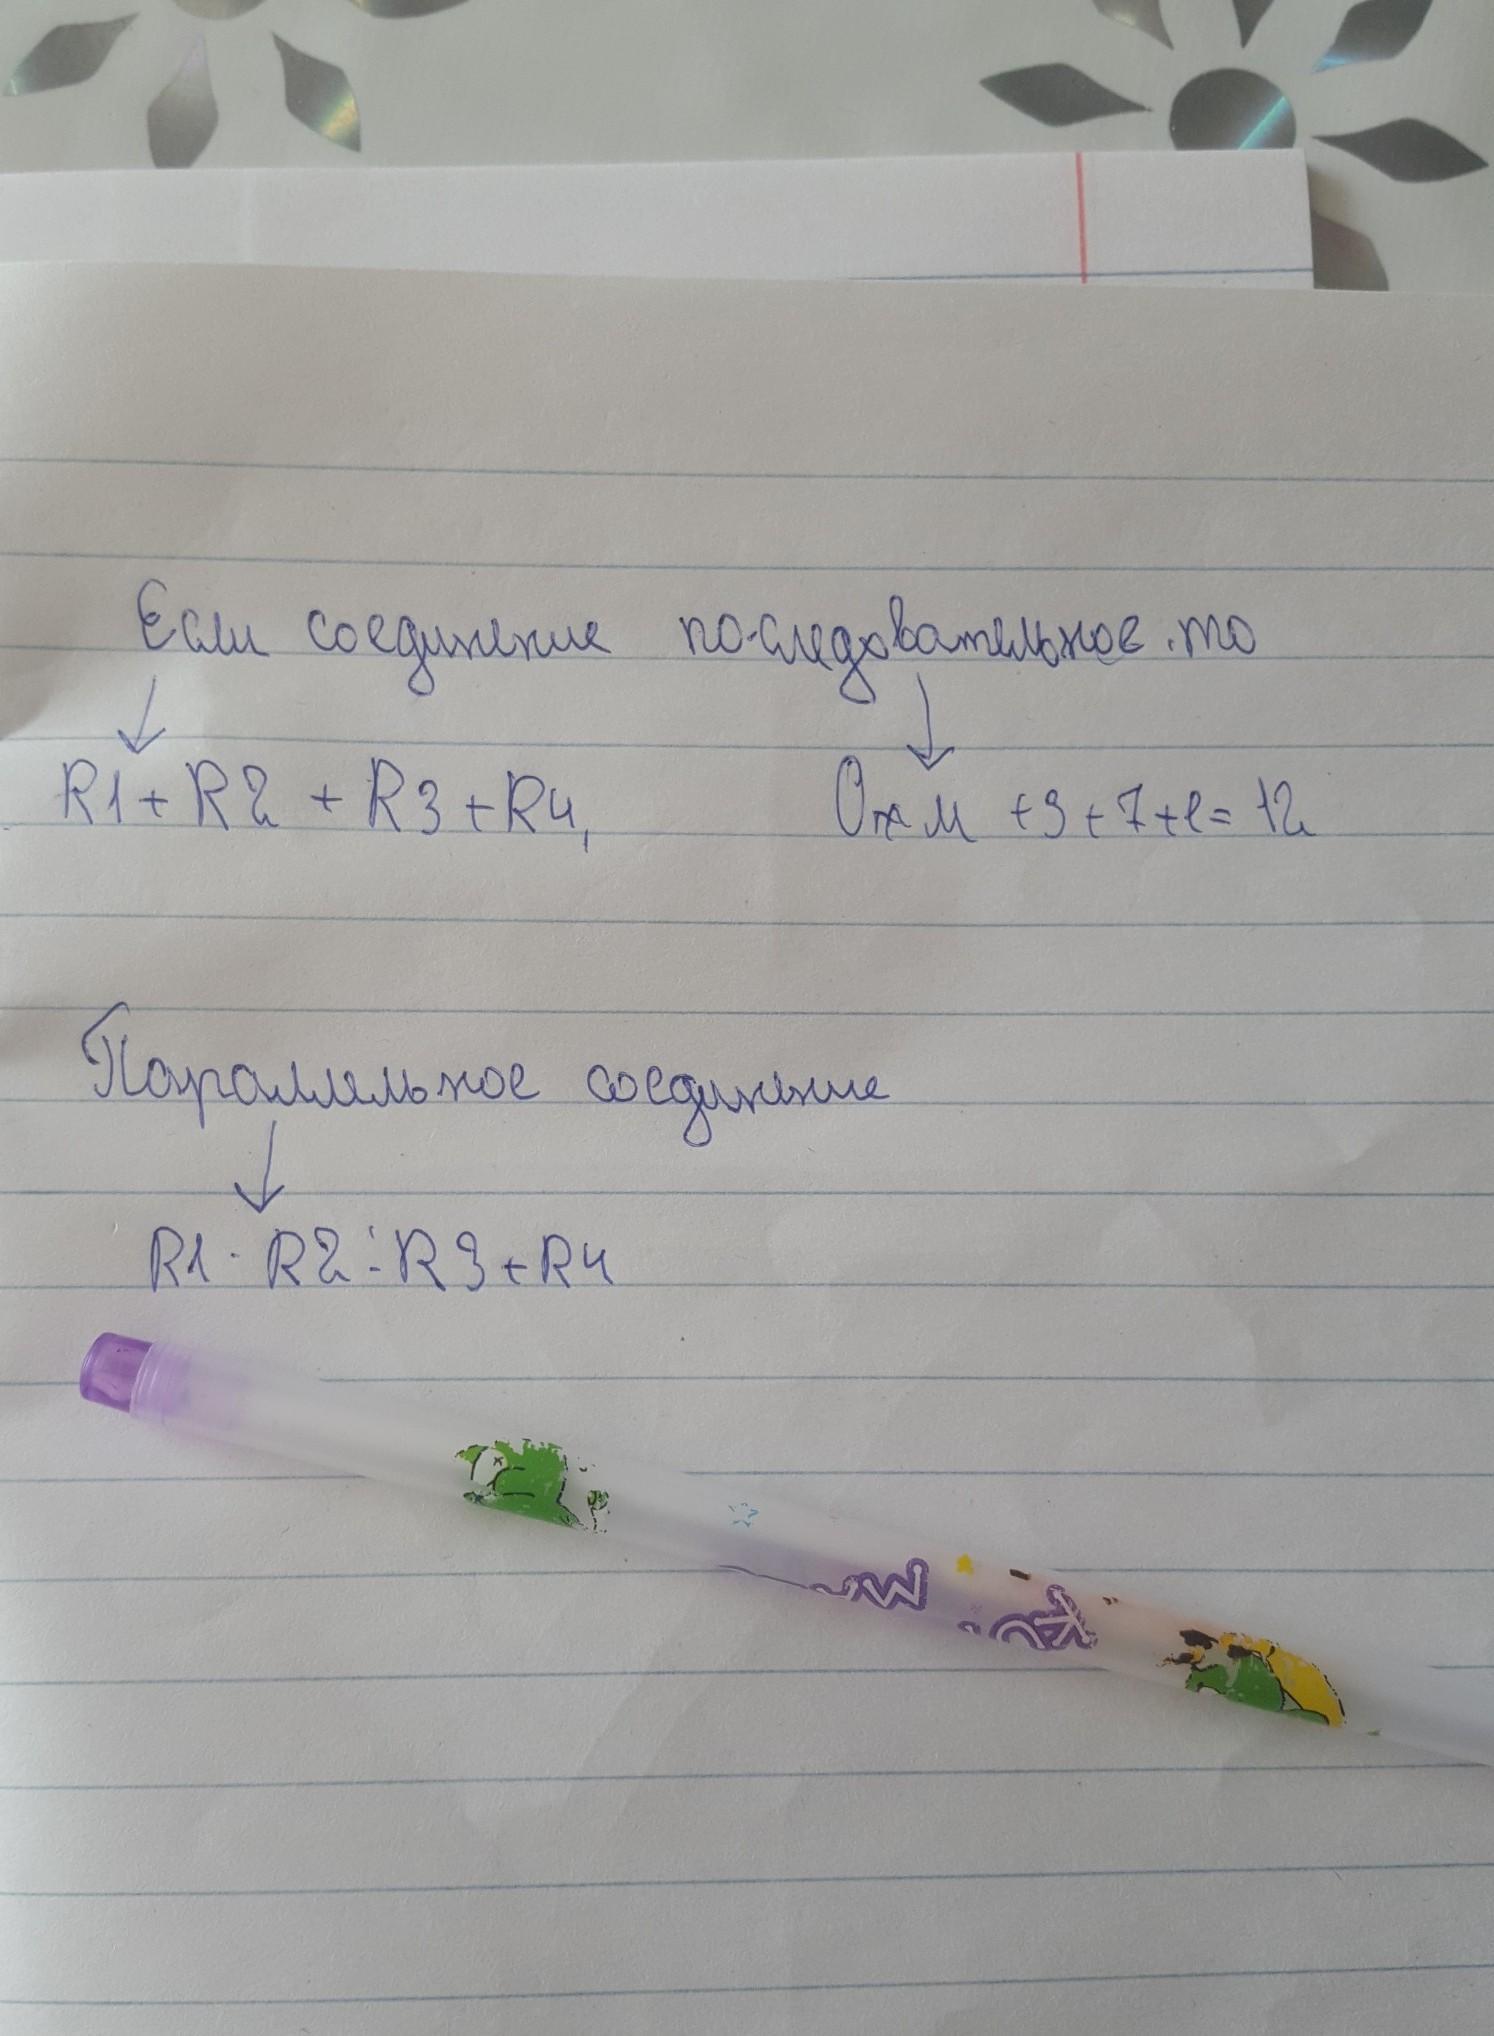 Если соединение последовательное. то
R1 + R2 + R3 + R4, Ом +3+7+2= 12
Параллельное соединение
R1 · R2 : R3 + R4